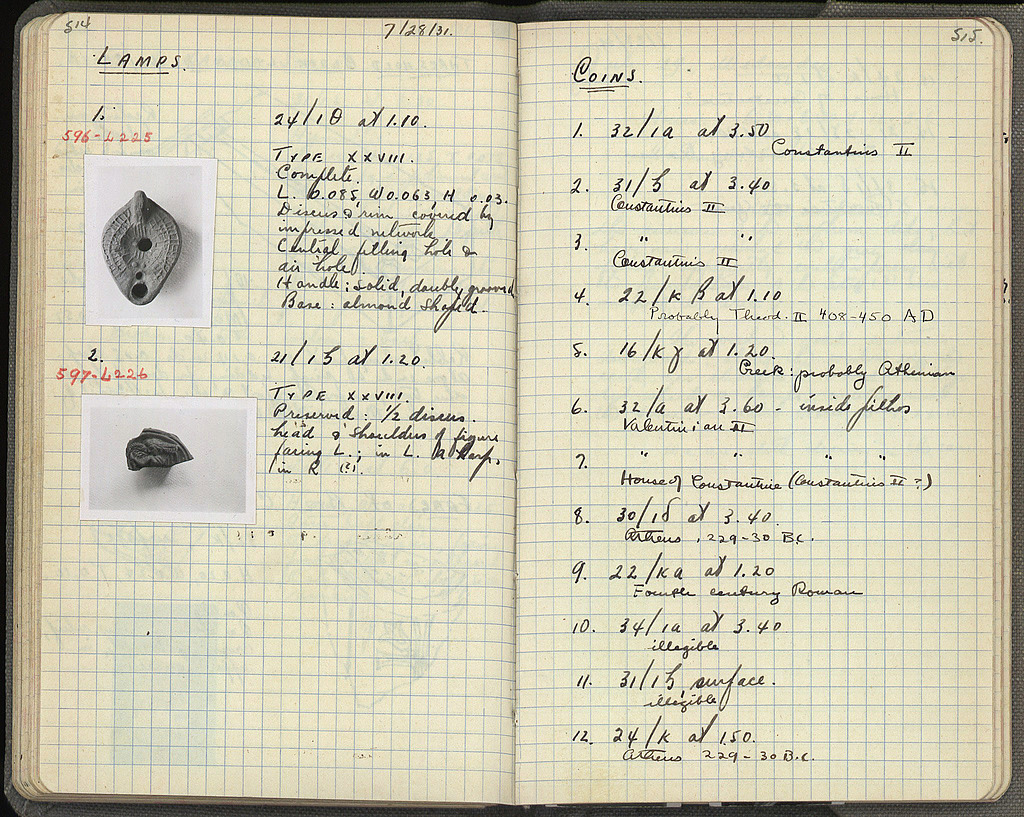 514
7/28/31.
LAMPS.
1.
24/1θ at 1.10.
596-L225
TYPE XXVIII.
Complete.
L. 0.085, W 0.063, H 0.03.
Discus & rim covered by
impressed network
Central filling hole &
air hole.
Handle: solid, doubly grooved
Base: almond shaped.
2.
21/15 at 1.20.
597-L226
TYPE XXVIII.
Preserved: 1/2 discus.
head & shoulders of figure
facing L.; in L. a harp,
in R (?).
515.
COINS.
1. 32/1a at 3.50
Constantius II
2. 31/ at 3.40
Constantius II
3. " "
Constantius II
4. 22/K β at 1.10
Probably Theod. II 408-450 AD
5. 16/K γ at 1.20.
Greek: probably Athenian
6. 32/a at 3.60 - inside pithos
Valentinian
7. " " " "
House of Constantine (Constantius II ?)
8. 30/1δ at 3.40.
Athens, 229-30 B.C.
9. 22/Ka at 1.20
Fourth century Roman
10. 34/1a at 3.40
illegible
11. surface.
illegible
12. 24/K at 1.50.
Athens 229-30 B.C.